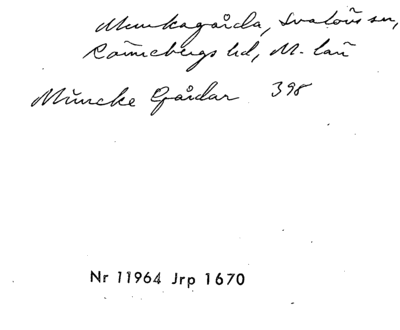 Munkagårda, Svalövs sn,
Rönnebergs hd, M. län
Müncke Gårdar 398
Nr 11964 Jrp 1670